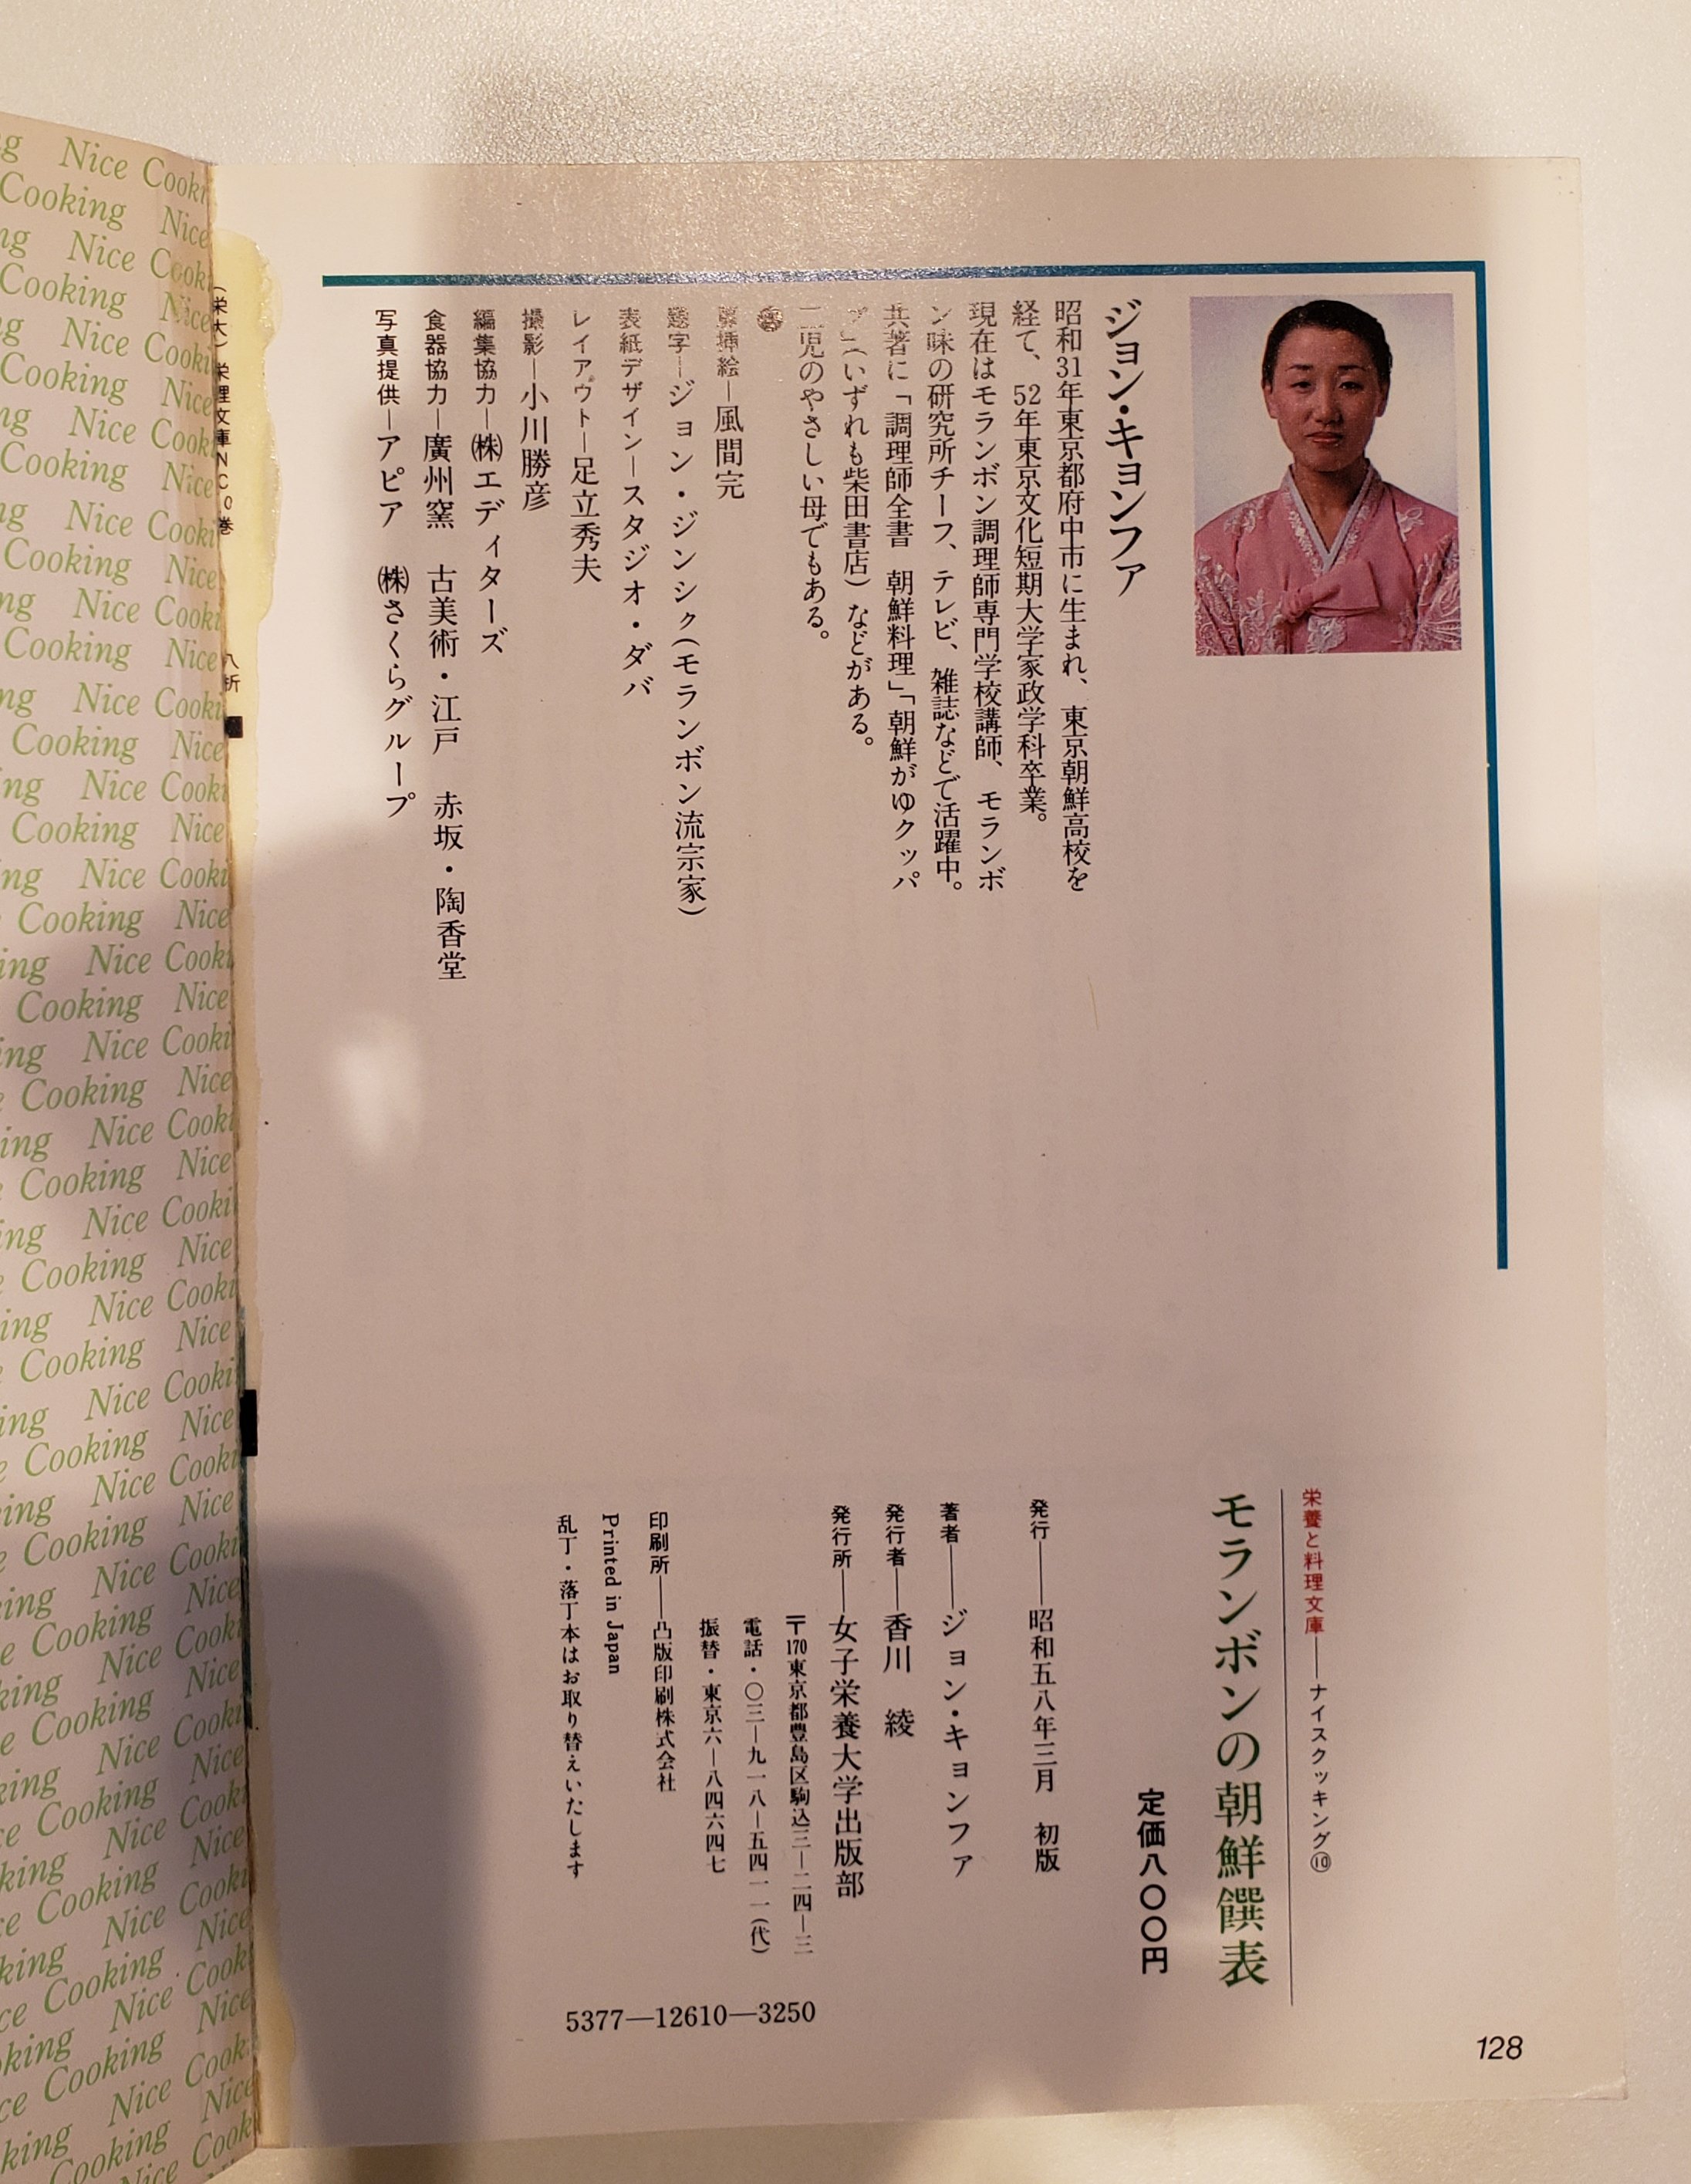 ジョン・キョンファ
昭和31年東京都府中市に生まれ、東京朝鮮高校を
経て、52年東京文化短期大学家政学科卒業。
現在はモランボン調理師専門学校講師、モランボ
ン味の研究所チーフ、テレビ、雑誌などで活躍中。
共著に「調理師全書 朝鮮料理」「朝鮮がゆクッパ
プ」(いずれも柴田書店)などがある。
二児のやさしい母でもある。
挿絵―風間完
題字―ジョン・ジンシク(モランボン流宗家)
表紙デザイン―スタジオ・ダバ
レイアウト―足立秀夫
撮影―小川勝彦
編集協力―㈱エディターズ
食器協力―廣州窯 古美術・江戸 赤坂・陶香堂
写真提供―アピア ㈱さくらグループ
栄養と料理文庫――ナイスクッキング⑩
モランボンの朝鮮饌表
定価八〇〇円
発行――昭和五八年三月 初版
著者――ジョン・キョンファ
発行者――香川 綾
発行所――女子栄養大学出版部
〒170東京都豊島区駒込三―二四―三
電話・〇三―九一八―五四一一(代)
振替・東京六―八四六四七
印刷所――凸版印刷株式会社
Printed in Japan
乱丁・落丁本はお取り替えいたします
5377―12610―3250
128
(栄大) 栄理文庫NC 巻
八折
Nice Cooki
Cooking Nice
ng Nice Cooki
Cooking Nice